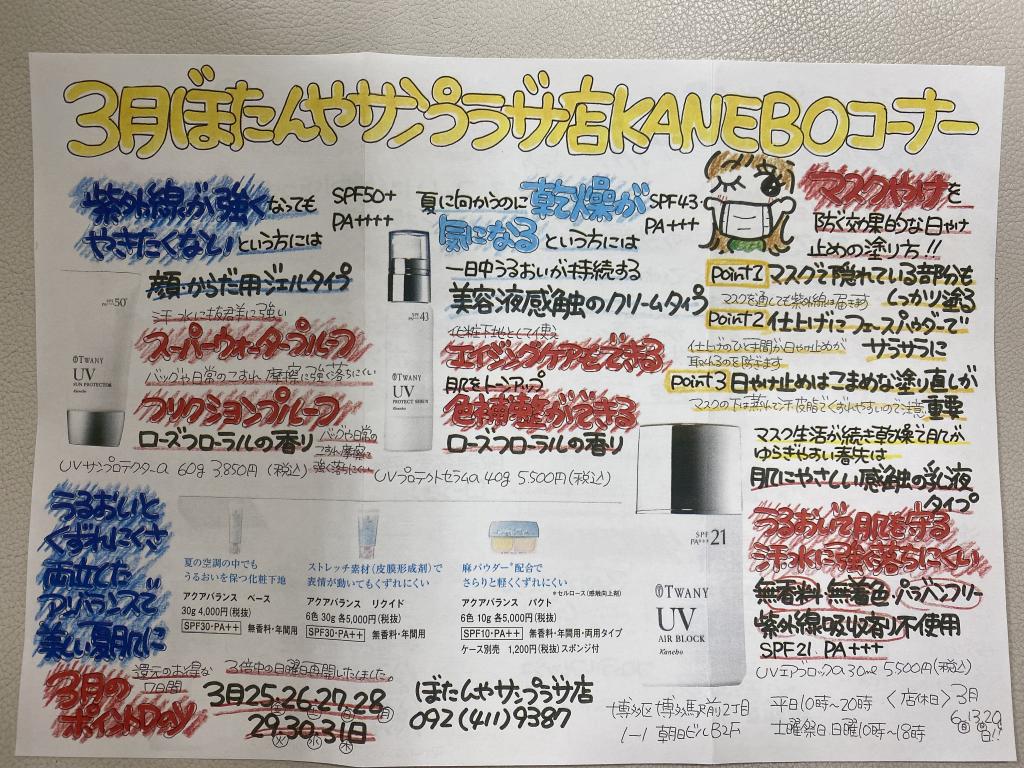 3月ぼたんやサンプラザ店KANEBOコーナー
紫外線が強くなっても
やきたくないという方には
SPF50+
PA++++
顔・からだ用ジェルタイプ
汗水に抜群に強い
スーパーウォータープルーフ
バッグや日常のこすれ、摩擦に強く落ちにくい
フリクションプルーフ
バッグや日常の
こすれ、摩擦に
強く落ちにくい
ローズフローラルの香り
UVサンプロテクターa 60g 3,850円(税込)
SPF50+
TWANY
UV
SUN PROTECTOR
Kanebo
夏に向かうのに乾燥が
気になるという方には
SPF43
PA+++
一日中うるおいが持続する
美容液感触のクリームタイプ
化粧下地として使え
エイジングケアもできる
肌をトーンアップ
色補整ができる
ローズフローラルの香り
UVプロテクトセラムa 40g 5,500円(税込)
43
TWANY
UV
PROTECT SERUM
Kanebo
マスクやけを
防ぐ効果的な日やけ
止めの塗り方!!
Point1 マスクで隠れている部分も
しっかり塗る
マスクを通しても紫外線は届きます
Point2 仕上げにフェースパウダーで
サラサラに
仕上げのひと手間が日やけ止めが
取れるのを防ぎます
Point3 日やけ止めはこまめな塗り直しが
重要
マスクの下は蒸れて汗皮脂でくずれやすいので注意
マスク生活が続き乾燥で肌が
ゆらぎやすい春先は
肌にやさしい感触の乳液
タイプ
うるおいで肌を守る
汗水に強く落ちにくい
無香料・無着色・パラベンフリー
紫外線吸収剤不使用
SPF21 PA+++
UVエアブロックa 30ml 5,500円(税込)
SPF 21
PA+++
TWANY
UV
AIR BLOCK
Kanebo
うるおいと
くずれにくさ
両立した
アクアバランスで
美しい夏肌に
夏の空調の中でも
うるおいを保つ化粧下地
アクアバランス ベース
30g 4,000円(税抜)
SPF30・PA++ 無香料・年間用
ストレッチ素材(皮膜形成剤)で
表情が動いてもくずれにくい
アクアバランス リクイド
6色 30g 各5,000円(税抜)
SPF30・PA++ 無香料・年間用
麻パウダー*配合で
さらりと軽くくずれにくい
*セルロース(感触向上剤)
アクアバランス パクト
6色 10g 各5,000円(税抜)
SPF10・PA++ 無香料・年間用・両用タイプ
ケース別売 1,200円(税抜)スポンジ付
3月の
ポイントDay
還元のお得な
7日間
3倍中の日曜日再開しました。
3月25・26・27・28
29・30・31日
ぼたんやサンプラザ店
092(411)9387
博多区博多駅前2丁目
1-1 朝日ビルB2F
平日10時〜20時
土曜祭日日曜10時〜18時
〈店休日〉3月
6、13、20
日!!